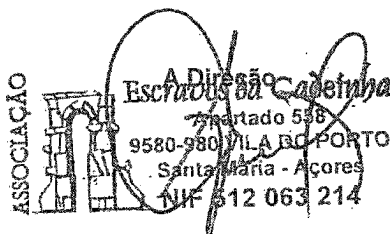 ASSOCIAÇÃO
A Direção
Escravos da Cadeinha
Apartado 538
9580-980 VILA DO PORTO
Santa Maria - Açores
NIF 512 063 214